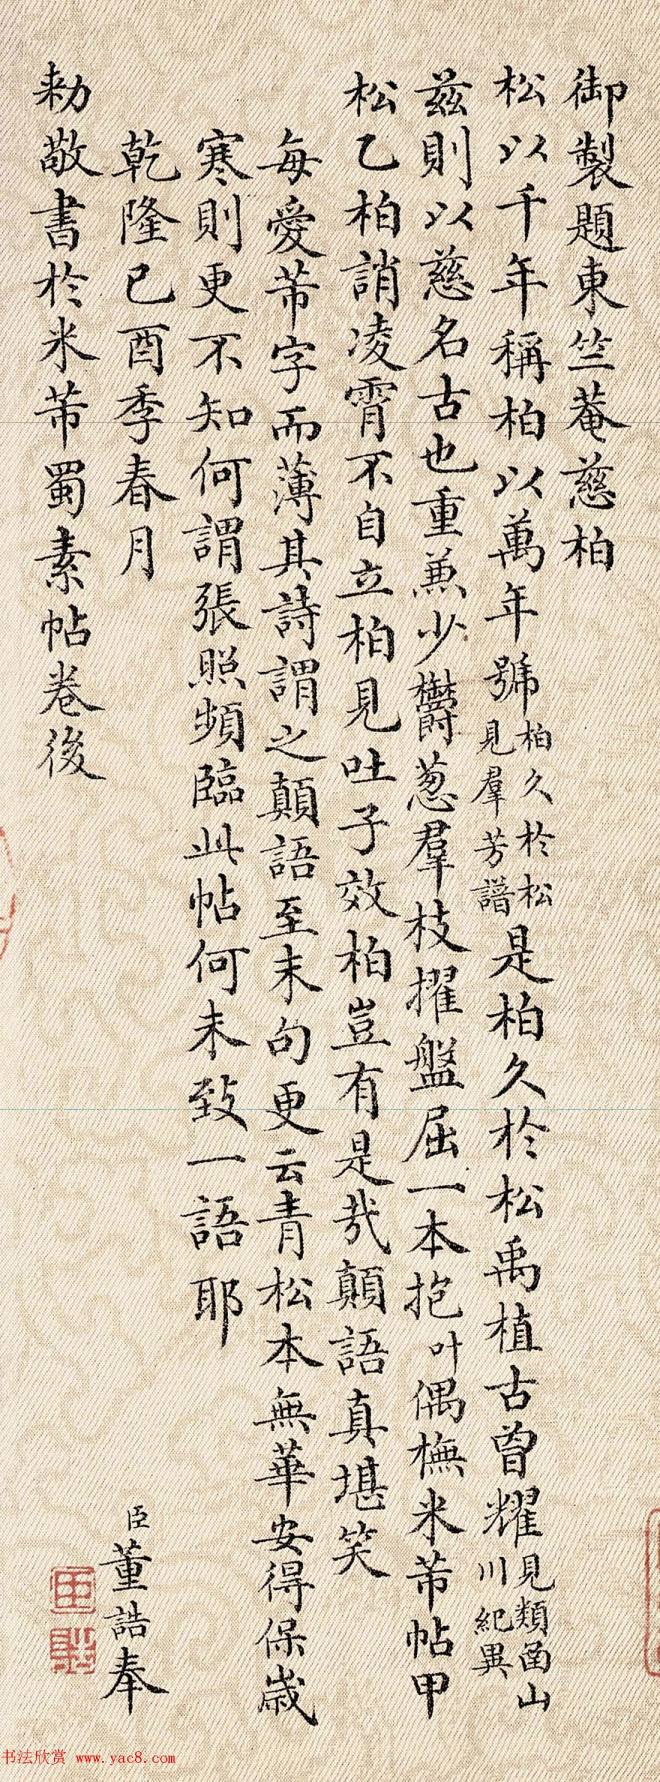 御製題東竺菴慈柏
松以千年稱柏以萬年號柏久於松見羣芳譜是柏久於松禹植古曾耀見類函山川紀異
茲則以慈名古也重兼少欝葱羣枝擢盤屈一本抱叶偶橅米芾帖甲
松乙柏誚凌霄不自立柏見吐子效柏豈有是㢤顛語真堪笑
每愛芾字而薄其詩謂之顛語至末句更云青松本無華安得保歲
寒則更不知何謂張照頻臨此帖何未致一語耶
乾隆己酉季春月
臣董誥奉
勅敬書於米芾蜀素帖卷後
书法欣赏 www.yac8.com